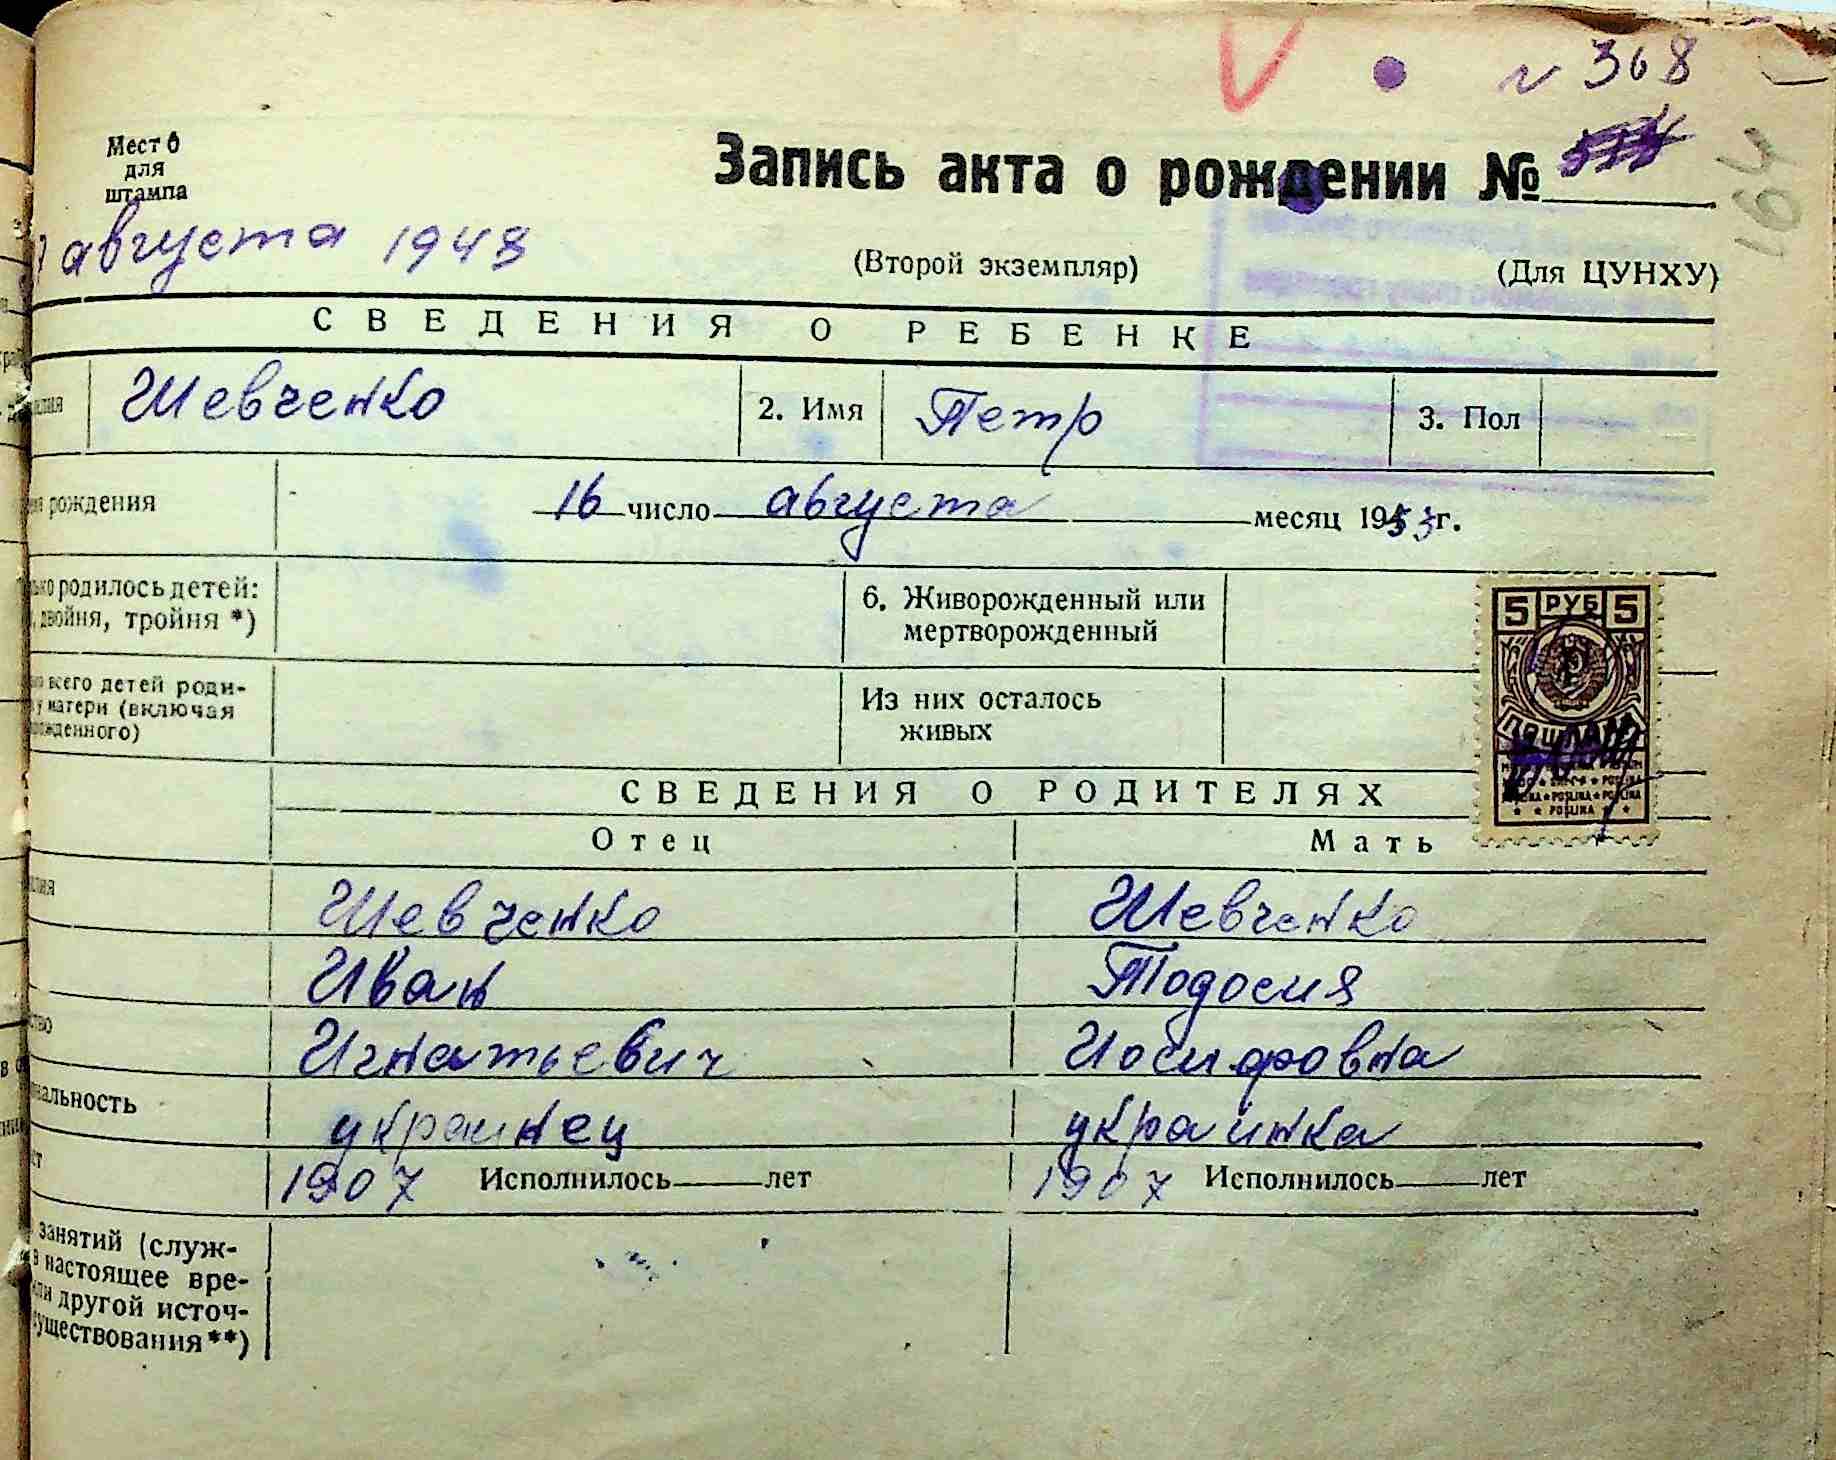 № 368
Место
для
штампа
Запись акта о рождении №
164
августа 1948
(Второй экземпляр) (Для ЦУНХУ)
СВЕДЕНИЯ О РЕБЕНКЕ
Шевченко 2. Имя Петр 3. Пол
рождения 16 число августа месяц 19 г.
родилось детей: 6. Живорожденный или
двойня, тройня *) мертворожденный
всего детей роди- Из них осталось
у матери (включая живых
5 РУБ 5
ПОШЛИНА
POSLINA
СВЕДЕНИЯ О РОДИТЕЛЯХ
Отец Мать
Шевченко Шевченко
Иван Тодосия
Игнатьевич Иосифовна
украинец украинка
1907 Исполнилось лет 1907 Исполнилось лет
занятий (служ-
в настоящее вре-
другой источ-
существования**)